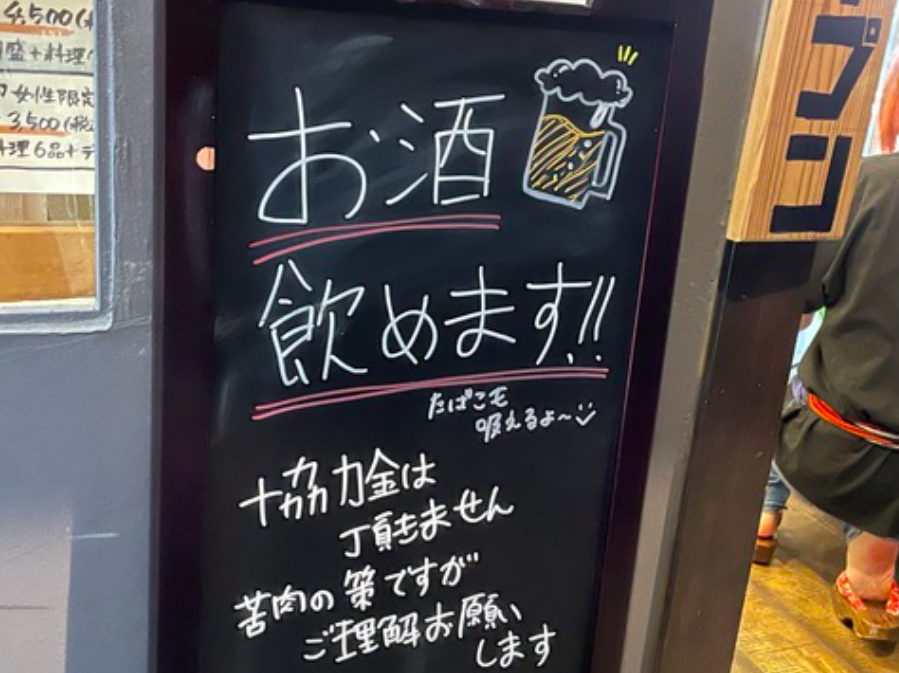 4,500(
盛+料理
女性限定
3,500(税
料理6品+デ
お酒
飲めます!!
たばこも
吸えるよ～
協力金は
頂きません
苦肉の策ですが
ご理解お願い
します
プン